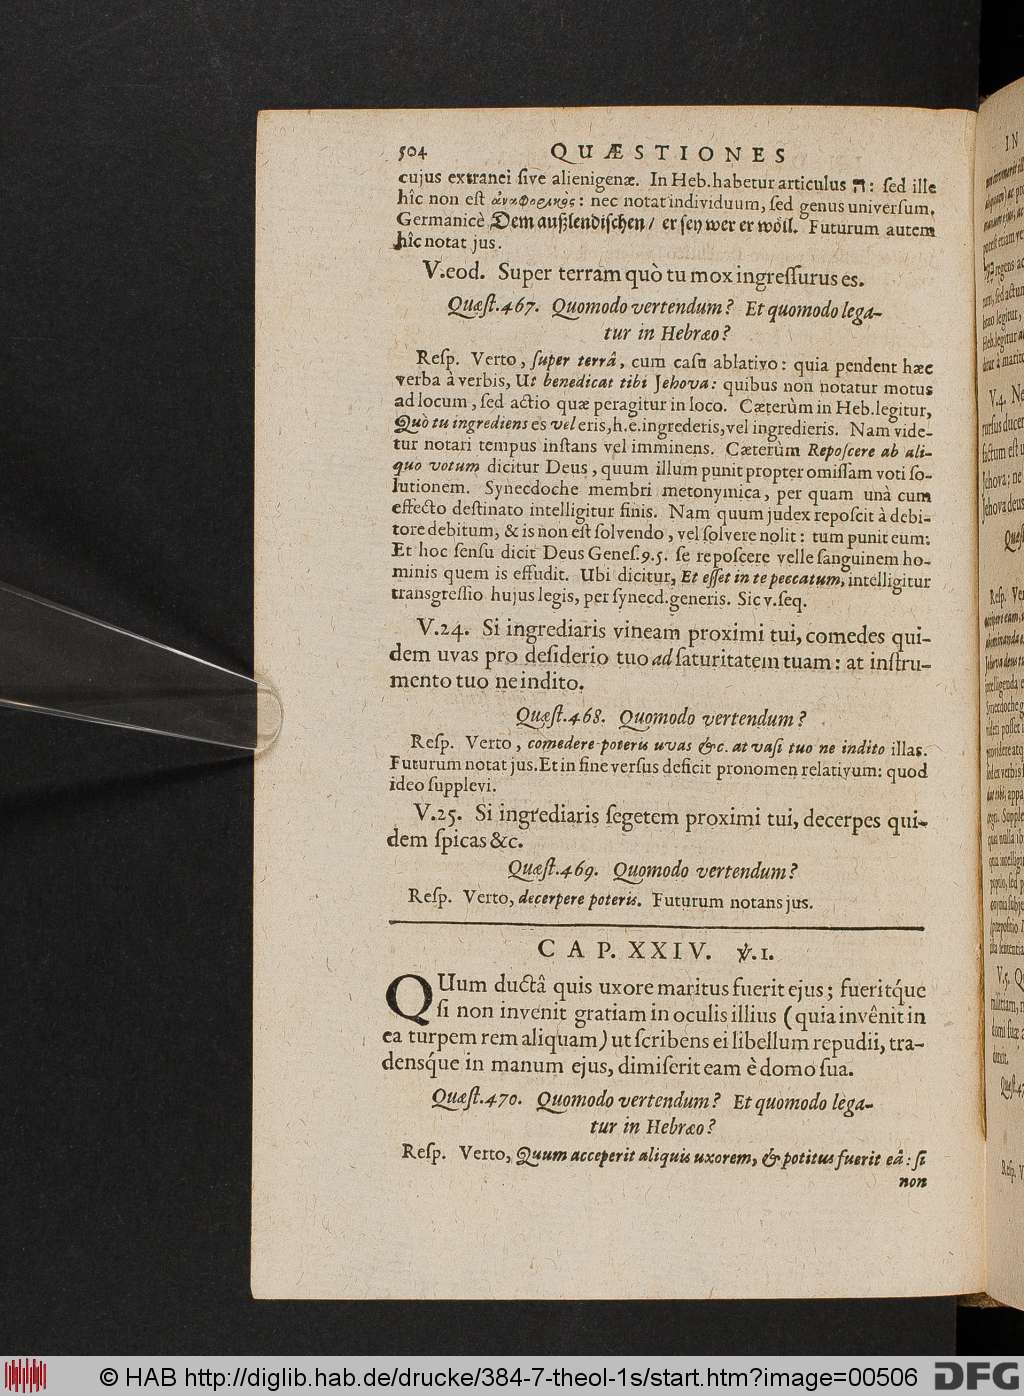 504 QUÆSTIONES
cujus extranei ſive alienigenæ. In Heb. habetur articulus ה: ſed ille
hîc non eſt ἀναφορικὸς: nec notat individuum, ſed genus univerſum.
Germanicè Dem außlendiſchen / er ſey wer er wöll. Futurum autem
hîc notat jus.
V. eod. Super terram quò tu mox ingreſſurus es.
Quæſt. 467. Quomodo vertendum? Et quomodo lega-
tur in Hebræo?
Reſp. Verto, ſuper terrâ, cum caſu ablativo: quia pendent hæc
verba à verbis, Ut benedicat tibi Jehova: quibus non notatur motus
ad locum, ſed actio quæ peragitur in loco. Cæterùm in Heb. legitur,
Quò tu ingrediens es vel eris, h.e. ingrederis, vel ingredieris. Nam vide-
tur notari tempus inſtans vel imminens. Cæterùm Repoſcere ab ali-
quo votum dicitur Deus, quum illum punit propter omiſſam voti ſo-
lutionem. Synecdoche membri metonymica, per quam unà cum
effecto deſtinato intelligitur finis. Nam quum judex repoſcit à debi-
tore debitum, & is non eſt ſolvendo, vel ſolvere nolit: tum punit eum:
Et hoc ſenſu dicit Deus Geneſ. 9.5. ſe repoſcere velle ſanguinem ho-
minis quem is effudit. Ubi dicitur, Et eſſet in te peccatum, intelligitur
transgreſſio hujus legis, per ſynecd. generis. Sic v. ſeq.
V.24. Si ingrediaris vineam proximi tui, comedes qui-
dem uvas pro deſiderio tuo ad ſaturitatem tuam: at inſtru-
mento tuo ne indito.
Quæſt. 468. Quomodo vertendum?
Reſp. Verto, comedere poteris uvas &c. at vaſi tuo ne indito illas.
Futurum notat jus. Et in fine verſus deficit pronomen relativum: quod
ideo ſupplevi.
V.25. Si ingrediaris ſegetem proximi tui, decerpes qui-
dem ſpicas &c.
Quæſt. 469. Quomodo vertendum?
Reſp. Verto, decerpere poteris. Futurum notans jus.
CAP. XXIV. ℣.1.
QUum ductâ quis uxore maritus fuerit ejus; fueritq́ue
ſi non invenit gratiam in oculis illius (quia invênit in
ea turpem rem aliquam) ut ſcribens ei libellum repudii, tra-
densq́ue in manum ejus, dimiſerit eam è domo ſua.
Quæſt. 470. Quomodo vertendum? Et quomodo lega-
tur in Hebræo?
Reſp. Verto, Quum acceperit aliquis uxorem, & potitus fuerit eâ: ſi
non
© HAB http://diglib.hab.de/drucke/384-7-theol-1s/start.htm?image=00506
DFG